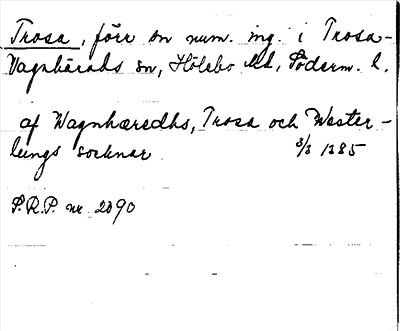 Trosa, förr sn num. ing. i Trosa-
Vagnhärads sn, Hölebo hd, Söderm. l.
af Wagnhæredhs, Trosa och Wester-
lungs socknar 3/3 1385
S.R.P. nr 2090